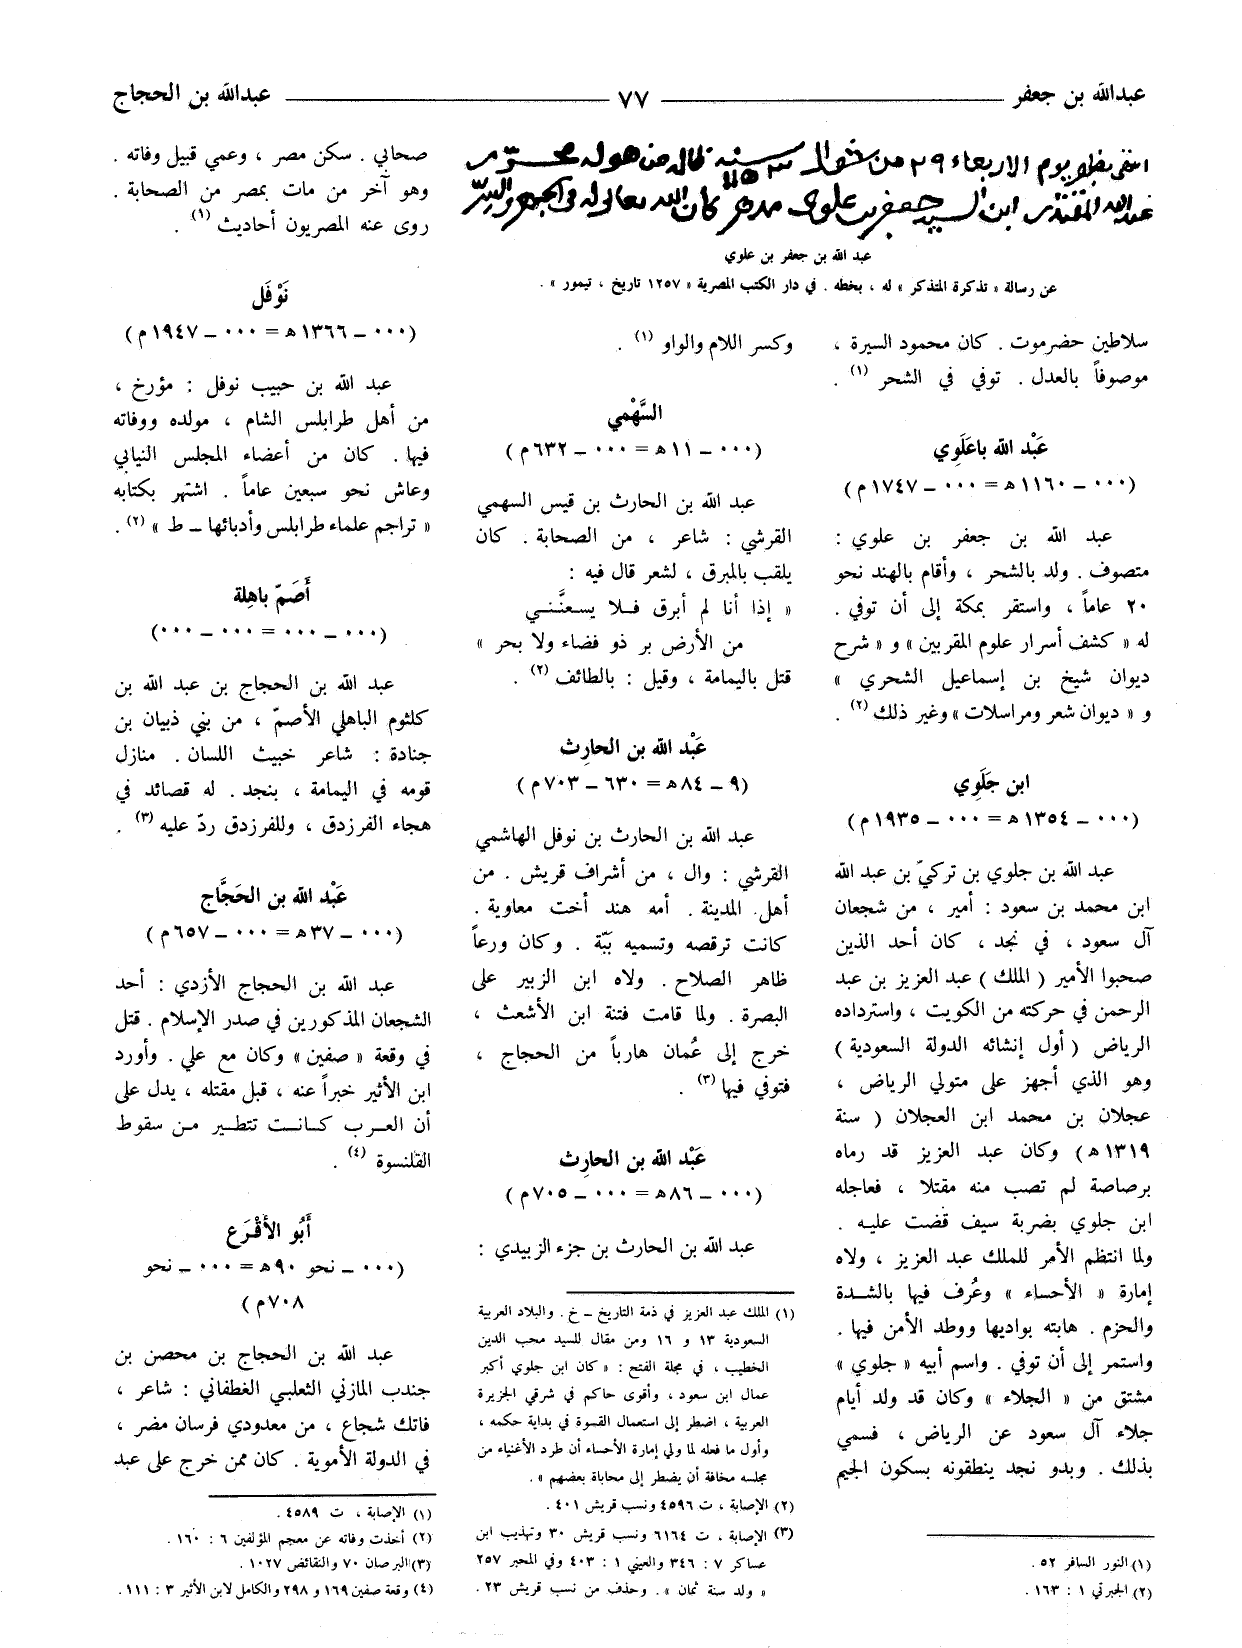 عبدالله بن جعفر ٧٧ عبدالله بن الحجاج
انتهى بظهر يوم الاربعاء ٢٩ من شوال سنة
عبدالله ابن السيد جعفر بن علوي مدهر كان الله تعالى له في الجهر والسر
عبد الله بن جعفر بن علوي
عن رسالة « تذكرة المتذكر » له ، بخطه . في دار الكتب المصرية « ١٢٥٧ تاريخ ، تيمور » .
سلاطين حضرموت . كان محمود السيرة ،
موصوفاً بالعدل . توفي في الشحر (١) .
عَبْد الله باعَلَوي
(٠٠٠ ــ ١١٦٠ ه = ٠٠٠ ــ ١٧٤٧ م)
عبد الله بن جعفر بن علوي :
متصوف . ولد بالشحر ، وأقام بالهند نحو
٢٠ عاماً ، واستقر بمكة إلى أن توفي .
له « كشف أسرار علوم المقربين » و « شرح
ديوان شيخ بن إسماعيل الشحري »
و « ديوان شعر ومراسلات » وغير ذلك (٢) .
ابن جَلَوي
(٠٠٠ ــ ١٣٥٤ ه = ٠٠٠ ــ ١٩٣٥ م)
عبد الله بن جلوي بن تركيّ بن عبد الله
ابن محمد بن سعود : أمير ، من شجعان
آل سعود ، في نجد ، كان أحد الذين
صحبوا الأمير ( الملك ) عبد العزيز بن عبد
الرحمن في حركته من الكويت ، واسترداده
الرياض ( أول إنشائه الدولة السعودية )
وهو الذي أجهز على متولي الرياض ،
عجلان بن محمد ابن العجلان ( سنة
١٣١٩ ه ) وكان عبد العزيز قد رماه
برصاصة لم تصب منه مقتلا ، فعاجله
ابن جلوي بضربة سيف قضت عليه .
ولما انتظم الأمر للملك عبد العزيز ، ولاه
إمارة « الأحساء » وعُرف فيها بالشدة
والحزم . هابته بواديها ووطد الأمن فيها .
واستمر إلى أن توفي . واسم أبيه « جلوي »
مشتق من « الجلاء » وكان قد ولد أيام
جلاء آل سعود عن الرياض ، فسمي
بذلك . وبدو نجد ينطقونه بسكون الجيم
(١) النور السافر ٥٢ .
(٢) الجبرتي ١ : ١٦٣ .
وكسر اللام والواو (١) .
السَّهْمي
(٠٠٠ ــ ١١ ه = ٠٠٠ ــ ٦٣٢ م)
عبد الله بن الحارث بن قيس السهمي
القرشي : شاعر ، من الصحابة . كان
يلقب بالمبرق ، لشعر قال فيه :
« إذا أنا لم أبرق فلا يسعنَّني
من الأرض بر ذو فضاء ولا بحر »
قتل باليمامة ، وقيل : بالطائف (٢) .
عَبْد الله بن الحارِث
(٩ ــ ٨٤ ه = ٦٣٠ ــ ٧٠٣ م)
عبد الله بن الحارث بن نوفل الهاشمي
القرشي : وال ، من أشراف قريش . من
أهل المدينة . أمه هند أخت معاوية .
كانت ترقصه وتسميه ببّة . وكان ورعاً
ظاهر الصلاح . ولاه ابن الزبير على
البصرة . ولما قامت فتنة ابن الأشعث ،
خرج إلى عُمان هارباً من الحجاج ،
فتوفي فيها (٣) .
عَبْد الله بن الحارِث
(٠٠٠ ــ ٨٦ ه = ٠٠٠ ــ ٧٠٥ م)
عبد الله بن الحارث بن جزء الزبيدي :
(١) الملك عبد العزيز في ذمة التاريخ ــ خ . والبلاد العربية
السعودية ١٣ و ١٦ ومن مقال للسيد محب الدين
الخطيب ، في مجلة الفتح : « كان ابن جلوي أكبر
عمال ابن سعود ، وأقوى حاكم في شرقي الجزيرة
العربية ، اضطر إلى استعمال القسوة في بداية حكمه ،
وأول ما فعله لما ولي إمارة الأحساء أن طرد الأغنياء من
مجلسه مخافة أن يضطر إلى محاباة بعضهم » .
(٢) الإصابة ، ت ٤٥٩٦ ونسب قريش ٤٠١ .
(٣) الإصابة ، ت ٦١٦٤ ونسب قريش ٣٠ وتهذيب ابن
عساكر ٧ : ٣٤٦ والعيني ١ : ٤٠٣ وفي المحبر ٢٥٧
« ولد سنة ثمان » . وحذف من نسب قريش ٢٣ .
صحابي . سكن مصر ، وعمي قبيل وفاته .
وهو آخر من مات بمصر من الصحابة .
روى عنه المصريون أحاديث (١) .
نَوْفَل
(٠٠٠ ــ ١٣٦٦ ه = ٠٠٠ ــ ١٩٤٧ م)
عبد الله بن حبيب نوفل : مؤرخ ،
من أهل طرابلس الشام ، مولده ووفاته
فيها . كان من أعضاء المجلس النيابي
وعاش نحو سبعين عاماً . اشتهر بكتابه
« تراجم علماء طرابلس وأدبائها ــ ط » (٢) .
أَصَمّ باهِلة
(٠٠٠ ــ ٠٠٠ = ٠٠٠ ــ ٠٠٠)
عبد الله بن الحجاج بن عبد الله بن
كلثوم الباهلي الأصمّ ، من بني ذبيان بن
جنادة : شاعر خبيث اللسان . منازل
قومه في اليمامة ، بنجد . له قصائد في
هجاء الفرزدق ، وللفرزدق ردّ عليه (٣) .
عَبْد الله بن الحَجَّاج
(٠٠٠ ــ ٣٧ ه = ٠٠٠ ــ ٦٥٧ م)
عبد الله بن الحجاج الأزدي : أحد
الشجعان المذكورين في صدر الإسلام . قتل
في وقعة « صفين » وكان مع علي . وأورد
ابن الأثير خبراً عنه ، قبل مقتله ، يدل على
أن العرب كانت تتطير من سقوط
القلنسوة (٤) .
أَبُو الأَقْرَع
(٠٠٠ ــ نحو ٩٠ ه = ٠٠٠ ــ نحو
٧٠٨ م)
عبد الله بن الحجاج بن محصن بن
جندب المازني الثعلبي الغطفاني : شاعر ،
فاتك شجاع ، من معدودي فرسان مضر ،
في الدولة الأموية . كان ممن خرج على عبد
(١) الإصابة ، ت ٤٥٨٩ .
(٢) أخذت وفاته عن معجم المؤلفين ٦ : ١٦٠ .
(٣) البرصان ٧٠ والنقائض ١٠٢٧ .
(٤) وقعة صفين ١٦٩ و ٢٩٨ والكامل لابن الأثير ٣ : ١١١ .